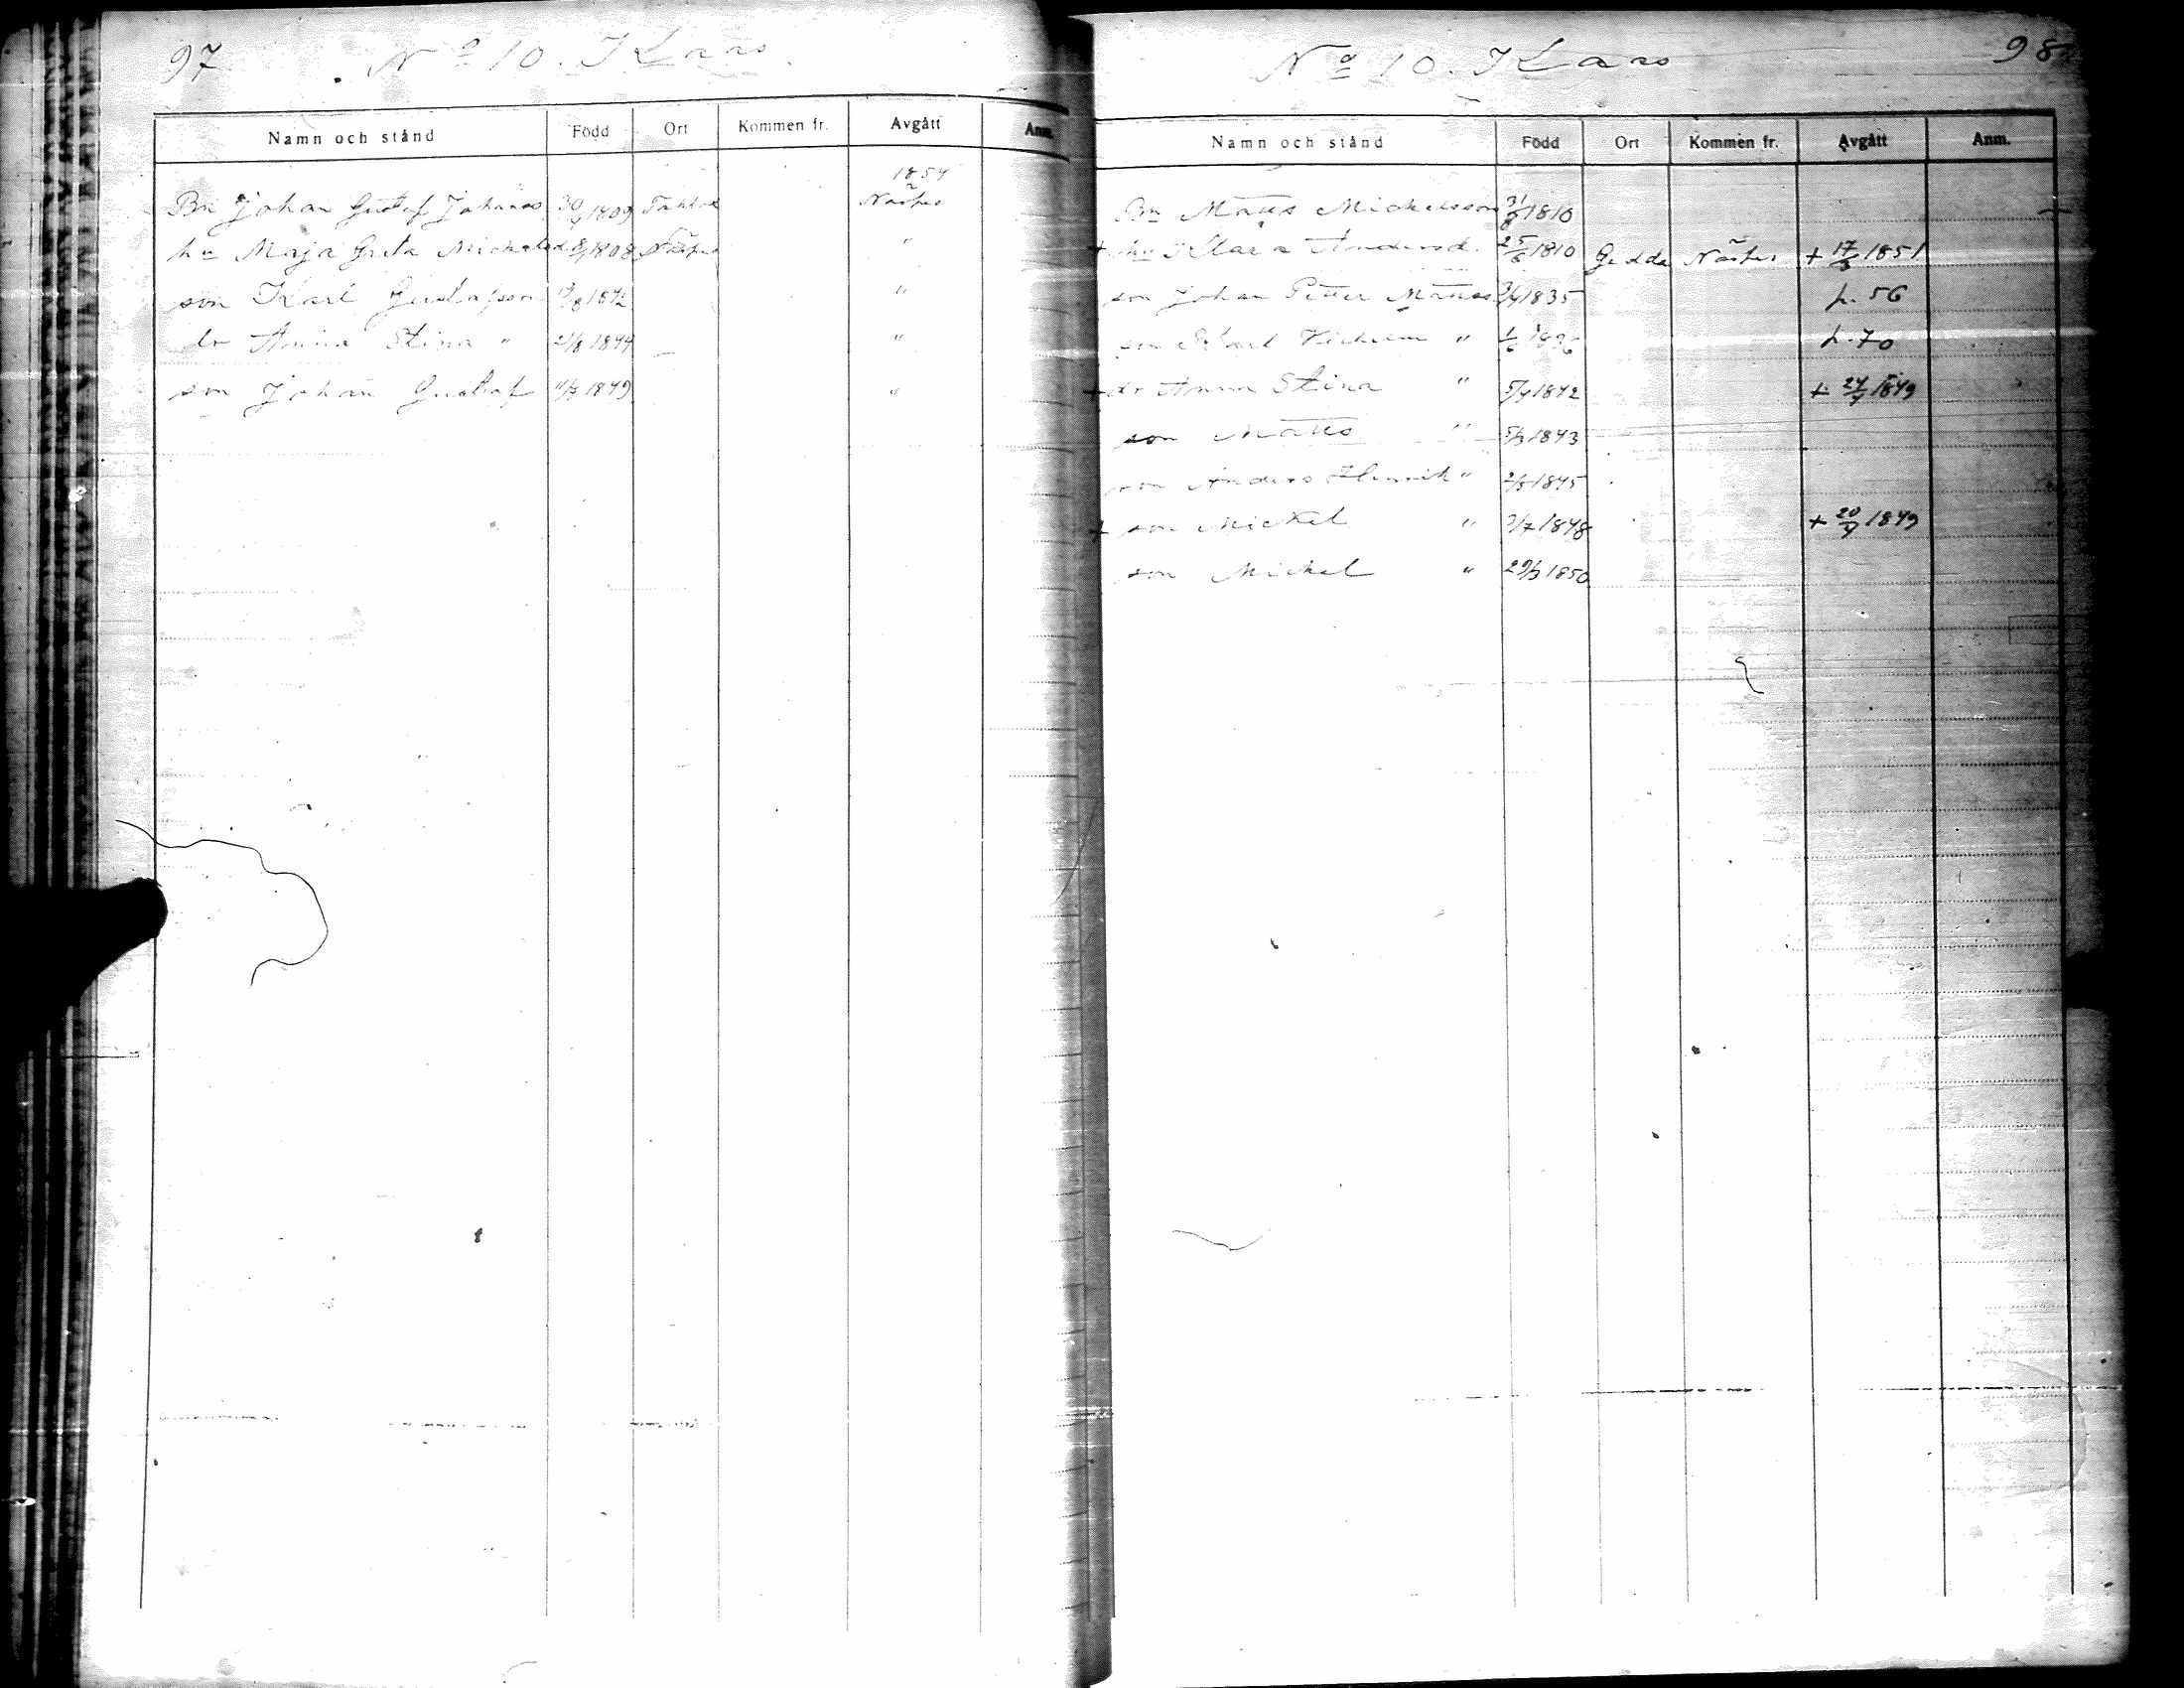 97 Nº 10. Klars
Namn och stånd Född Ort Kommen fr. Avgått Anm.
1854
Bn Johan Gustaf Johanss 30/4 1809 Näshes
hu Maja Greta Mickelsd 1808 "
son Karl Gustafsson 19/8 1842 "
dr Anna Stina " 21/8 1844 "
son Johan Gustaf 11/7 1849 "
Nº 10. Klars 98
Namn och stånd Född Ort Kommen fr. Avgått Anm.
Bn Matts Mickelsson 31/8 1810
+ hu Klara Andersd. 25/6 1810 Gedda Näshes + 17/3 1851
son Johan Petter Mattss 1835 p. 56
son Karl Vilhelm " 1836 p. 70
+ dr Anna Stina " 5/4 1842 + 24/4 1849
son Matts " 5/3 1843
son Anders Henrik " 2/5 1845
+ son Mickel " 3/7 1848 + 20/4 1849
son Mickel " 29/3 1850